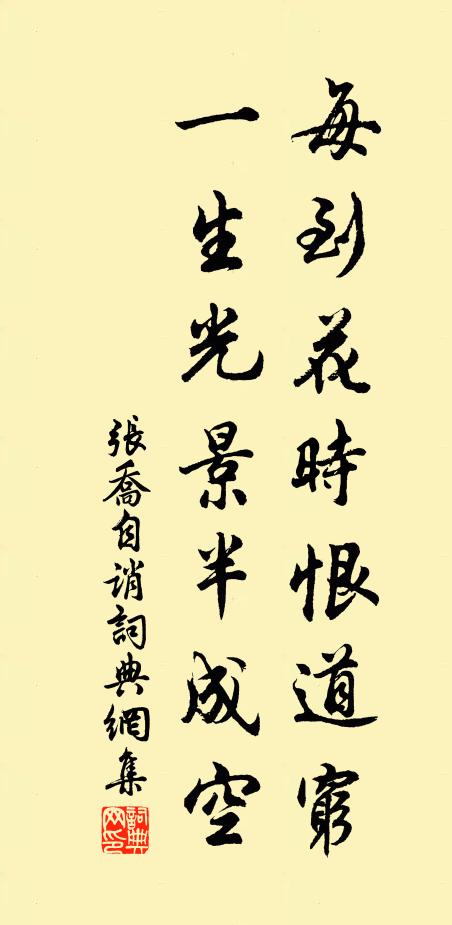 每到花時恨道窮
一生光景半成空
張喬自誚詞典網集
詞典網印